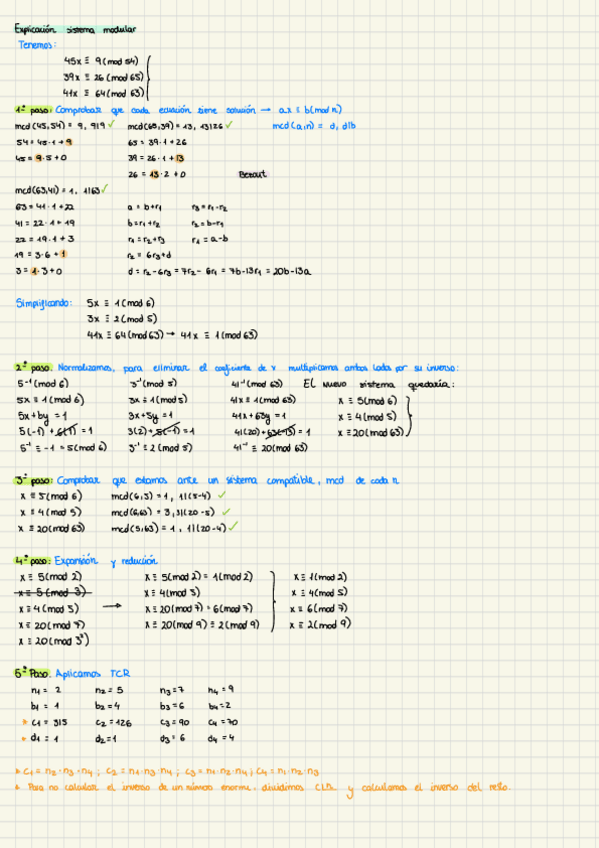 Explicación sistema modular
Tenemos:
45x ≡ 9 (mod 54)
39x ≡ 26 (mod 65)
41x ≡ 64 (mod 63)
1º paso: Comprobar que cada ecuación tiene solución → ax ≡ b (mod n)
mcd (45,54) = 9, 9|9 ✓ mcd (65,39) = 13, 13|26 ✓ mcd (a,n) = d, d|b
54 = 45·1 + 9 65 = 39·1 + 26
45 = 9·5 + 0 39 = 26·1 + 13
26 = 13·2 + 0 Bezout
mcd (63,41) = 1, 1|63 ✓
63 = 41·1 + 22 a = b + r₁ r₃ = r₁ - r₂
41 = 22·1 + 19 b = r₁ + r₂ r₂ = b - r₁
22 = 19·1 + 3 r₁ = r₂ + r₃ r₁ = a - b
19 = 3·6 + 1 r₂ = 6r₃ + d
3 = 1·3 + 0 d = r₂ - 6r₃ = 7r₂ - 6r₁ = 7b - 13r₁ = 20b - 13a
Simplificando: 5x ≡ 1 (mod 6)
3x ≡ 2 (mod 5)
41x ≡ 64 (mod 63) → 41x ≡ 1 (mod 63)
2º paso: Normalizamos, para eliminar el coeficiente de x multiplicamos ambos lados por su inverso:
5⁻¹ (mod 6) 3⁻¹ (mod 5) 41⁻¹ (mod 63) El nuevo sistema quedaría:
5x ≡ 1 (mod 6) 3x ≡ 1 (mod 5) 41x ≡ 1 (mod 63) x ≡ 5 (mod 6)
5x + by = 1 3x + 5y = 1 41x + 63y = 1 x ≡ 4 (mod 5)
5(-1) + 6(1) = 1 3(2) + 5(-1) = 1 41(20) + 63(-13) = 1 x ≡ 20 (mod 63)
5⁻¹ ≡ -1 = 5 (mod 6) 3⁻¹ ≡ 2 (mod 5) 41⁻¹ ≡ 20 (mod 63)
3º paso: Comprobar que estamos ante un sistema compatible, mcd de cada n
x ≡ 5 (mod 6) mcd (6,5) = 1, 1|(5-4) ✓
x ≡ 4 (mod 5) mcd (6,63) = 3, 3|(20-5) ✓
x ≡ 20 (mod 63) mcd (5,63) = 1, 1|(20-4) ✓
4º paso: Expansión y reducción
x ≡ 5 (mod 2) x ≡ 5 (mod 2) = 1 (mod 2) x ≡ 1 (mod 2)
x ≡ 5 (mod 3) x ≡ 4 (mod 5) x ≡ 4 (mod 5)
x ≡ 4 (mod 5) → x ≡ 20 (mod 7) = 6 (mod 7) x ≡ 6 (mod 7)
x ≡ 20 (mod 7) x ≡ 20 (mod 9) ≡ 2 (mod 9) x ≡ 2 (mod 9)
x ≡ 20 (mod 3²)
5º Paso. Aplicamos TCR
n₁ = 2 n₂ = 5 n₃ = 7 n₄ = 9
b₁ = 1 b₂ = 4 b₃ = 6 b₄ = 2
* c₁ = 315 c₂ = 126 c₃ = 90 c₄ = 70
* d₁ = 1 d₂ = 1 d₃ = 6 d₄ = 4
* c₁ = n₂·n₃·n₄ ; c₂ = n₁·n₃·n₄ ; c₃ = n₁·n₂·n₄ ; c₄ = n₁·n₂·n₃
* Para no calcular el inverso de un número enorme, dividimos y calculamos el inverso del resto.